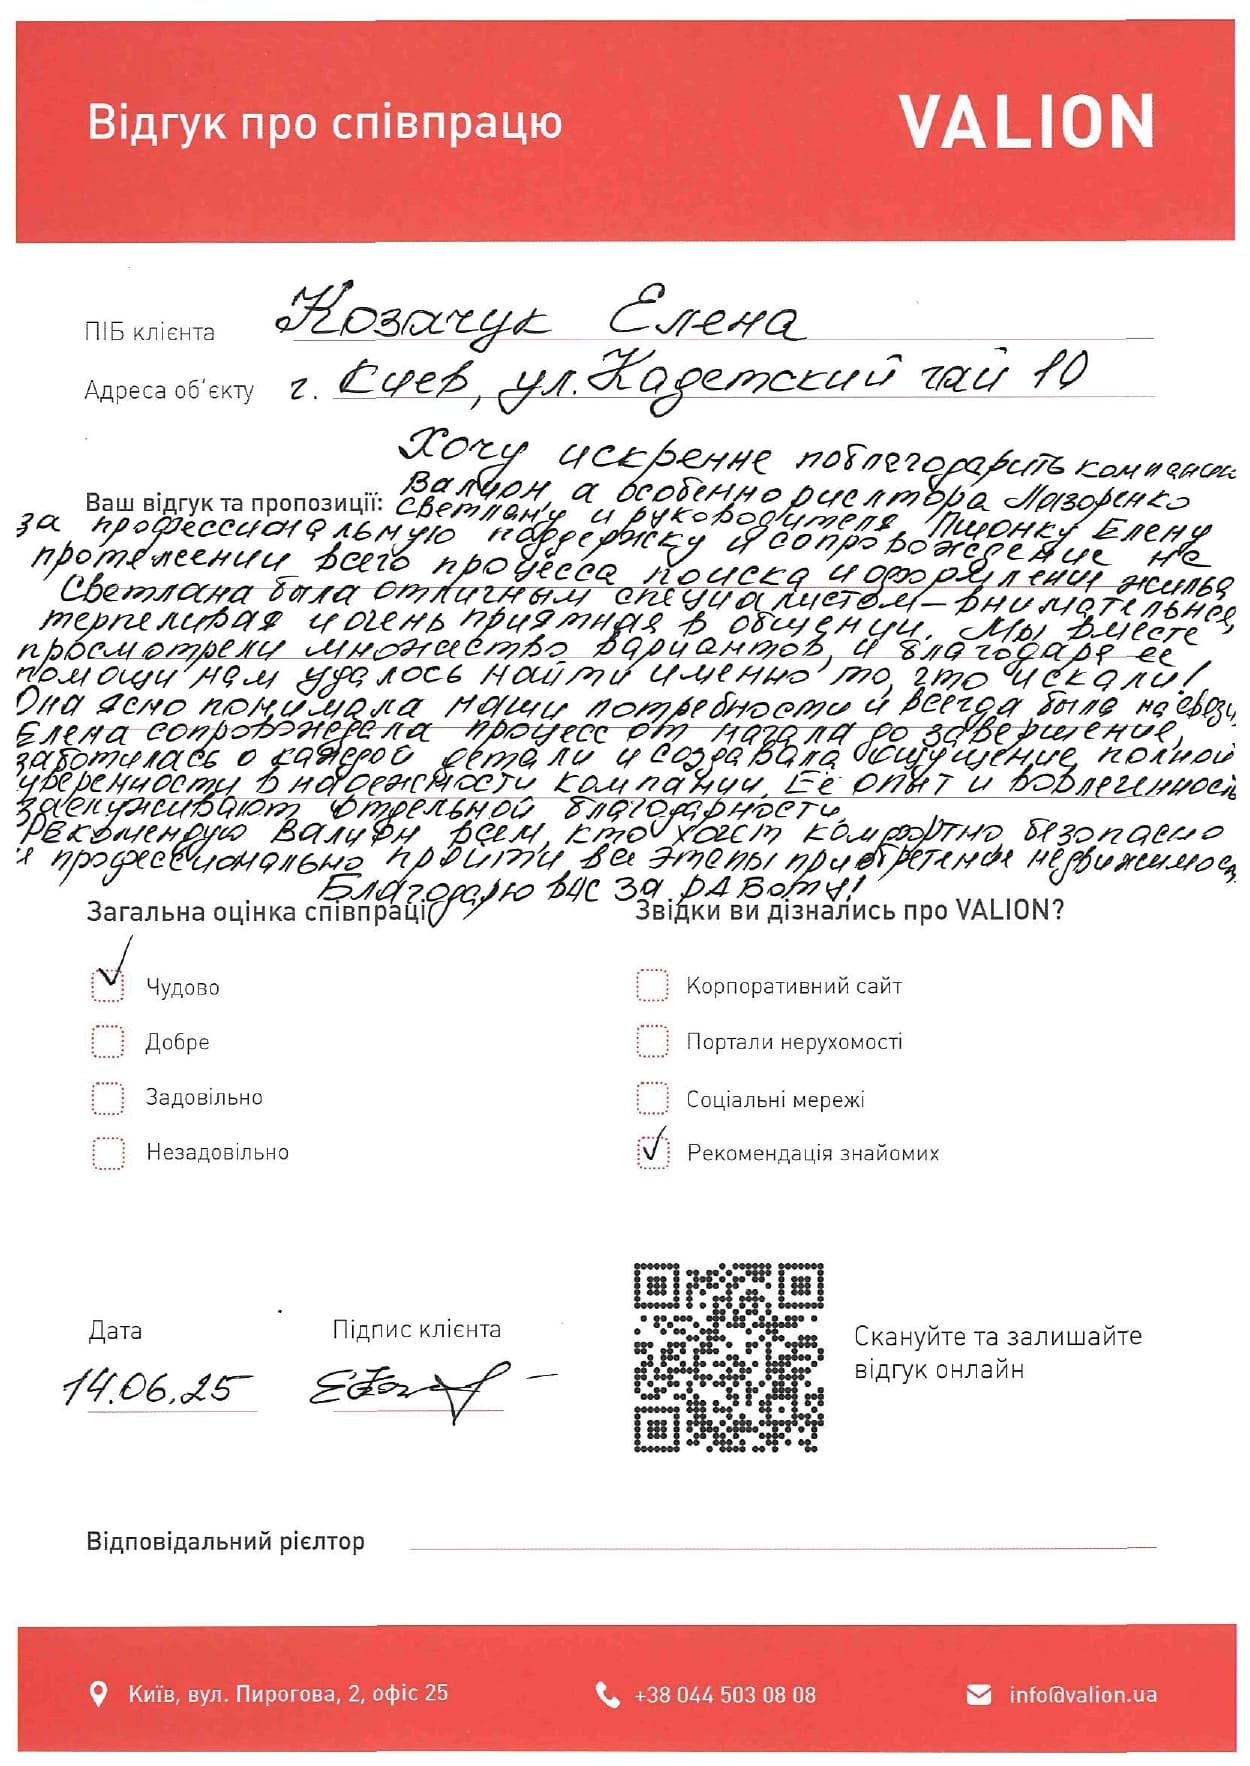 Відгук про співпрацю
VALION
ПІБ клієнта Козачук Елена
Адреса об'єкту г. Киев, ул. Кадетский гай 10
Хочу искренне поблагодарить компанию
Ваш відгук та пропозиції: Валион, а особенно риелтора Лазоренко
Светлану и руководителя Пшонку Елену
за профессиональную поддержку и сопровождение на
протяжении всего процесса поиска и оформления жилья
Светлана была отличным специалистом – внимательная,
терпеливая и очень приятная в общении. Мы вместе
просмотрели множество вариантов, и благодаря её
помощи нам удалось найти именно то, что искали!
Она ясно понимала наши потребности и всегда была на связи,
Елена сопровождала процесс от начала до завершения,
заботилась о каждой детали и создавала ощущение полной
уверенности в надежности компании. Её опыт и вовлеченность
заслуживают отдельной благодарности.
Рекомендую Валион всем, кто хочет комфортно безопасно
и профессионально пройти все этапы приобретения недвижимос
Благодарю вас за работу!
Загальна оцінка співпраці
Звідки ви дізнались про VALION?
Чудово
Корпоративний сайт
Добре
Портали нерухомості
Задовільно
Соціальні мережі
Незадовільно
Рекомендація знайомих
Дата
Підпис клієнта
14.06.25
Скануйте та залишайте
відгук онлайн
Відповідальний рієлтор
Київ, вул. Пирогова, 2, офіс 25
+38 044 503 08 08
info@valion.ua